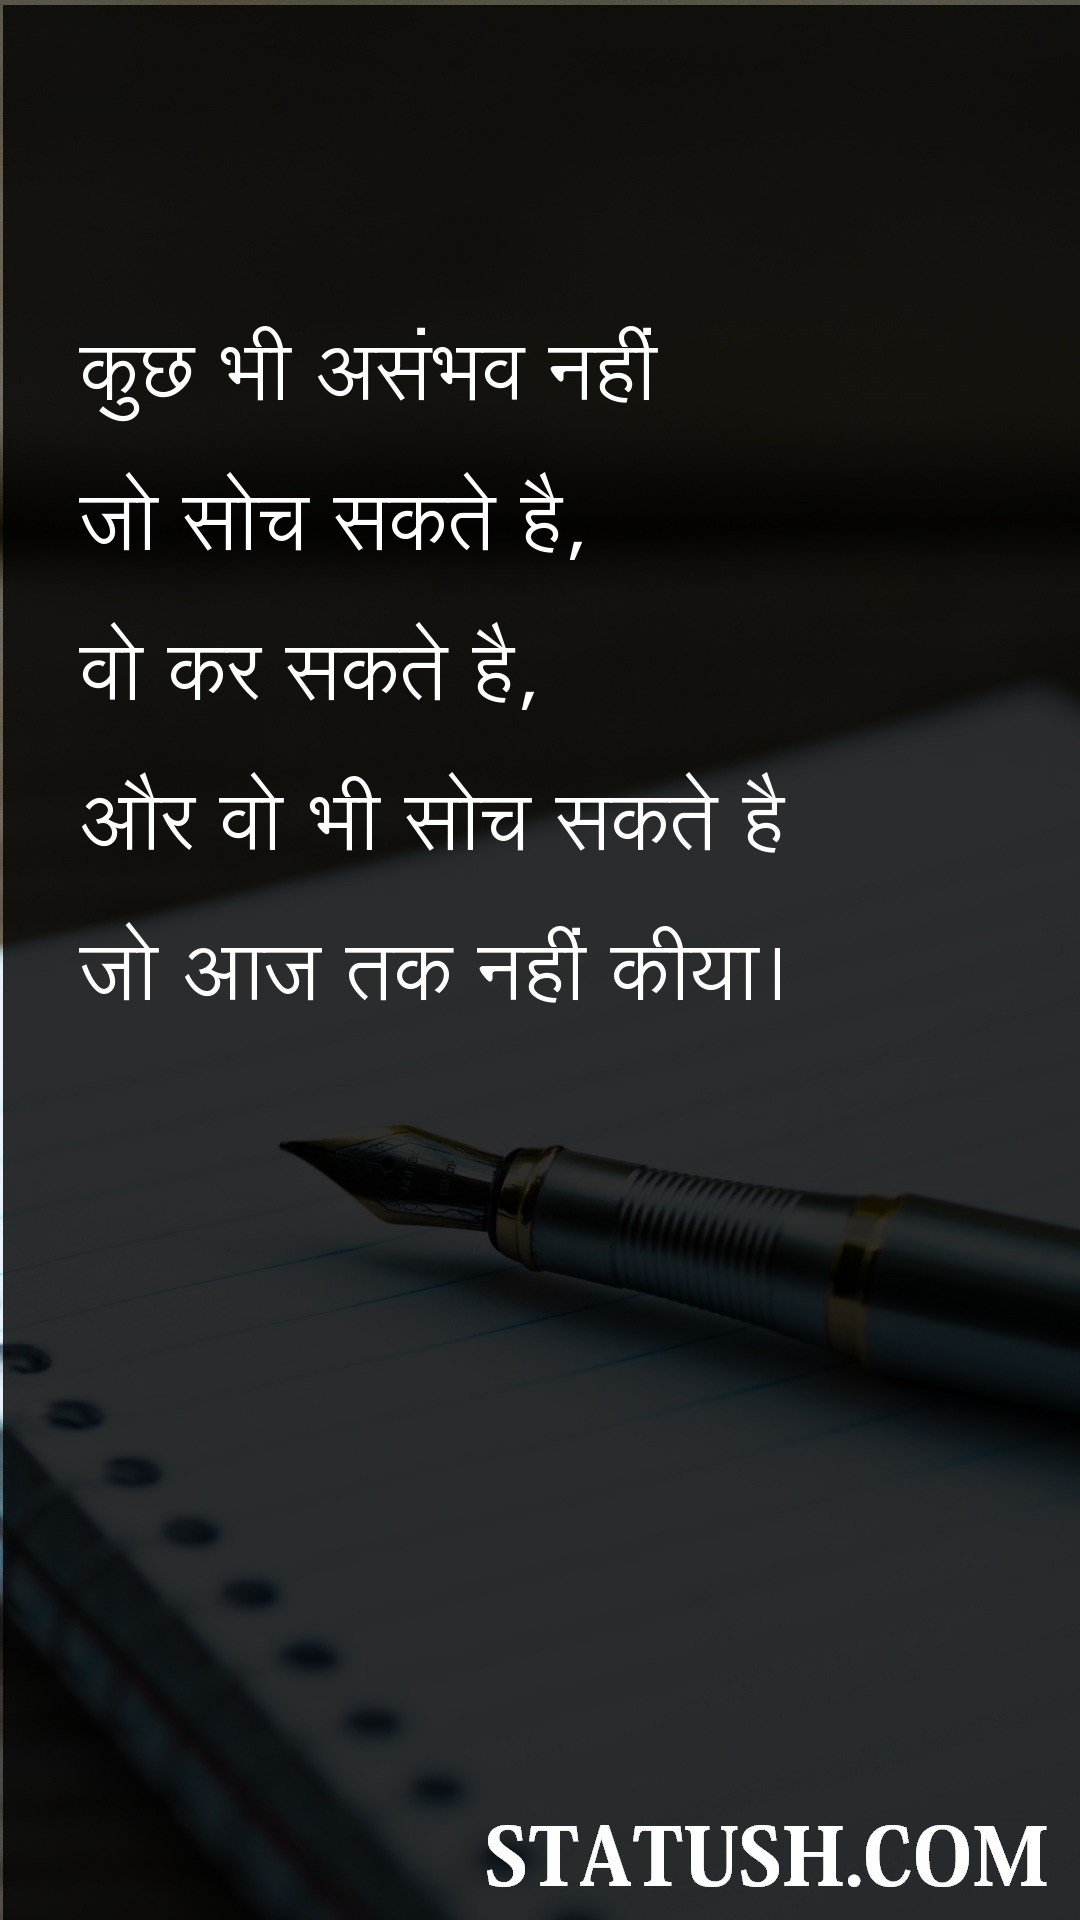 कुछ भी असंभव नहीं
जो सोच सकते है,
वो कर सकते है,
और वो भी सोच सकते है
जो आज तक नहीं कीया।
STATUSH.COM